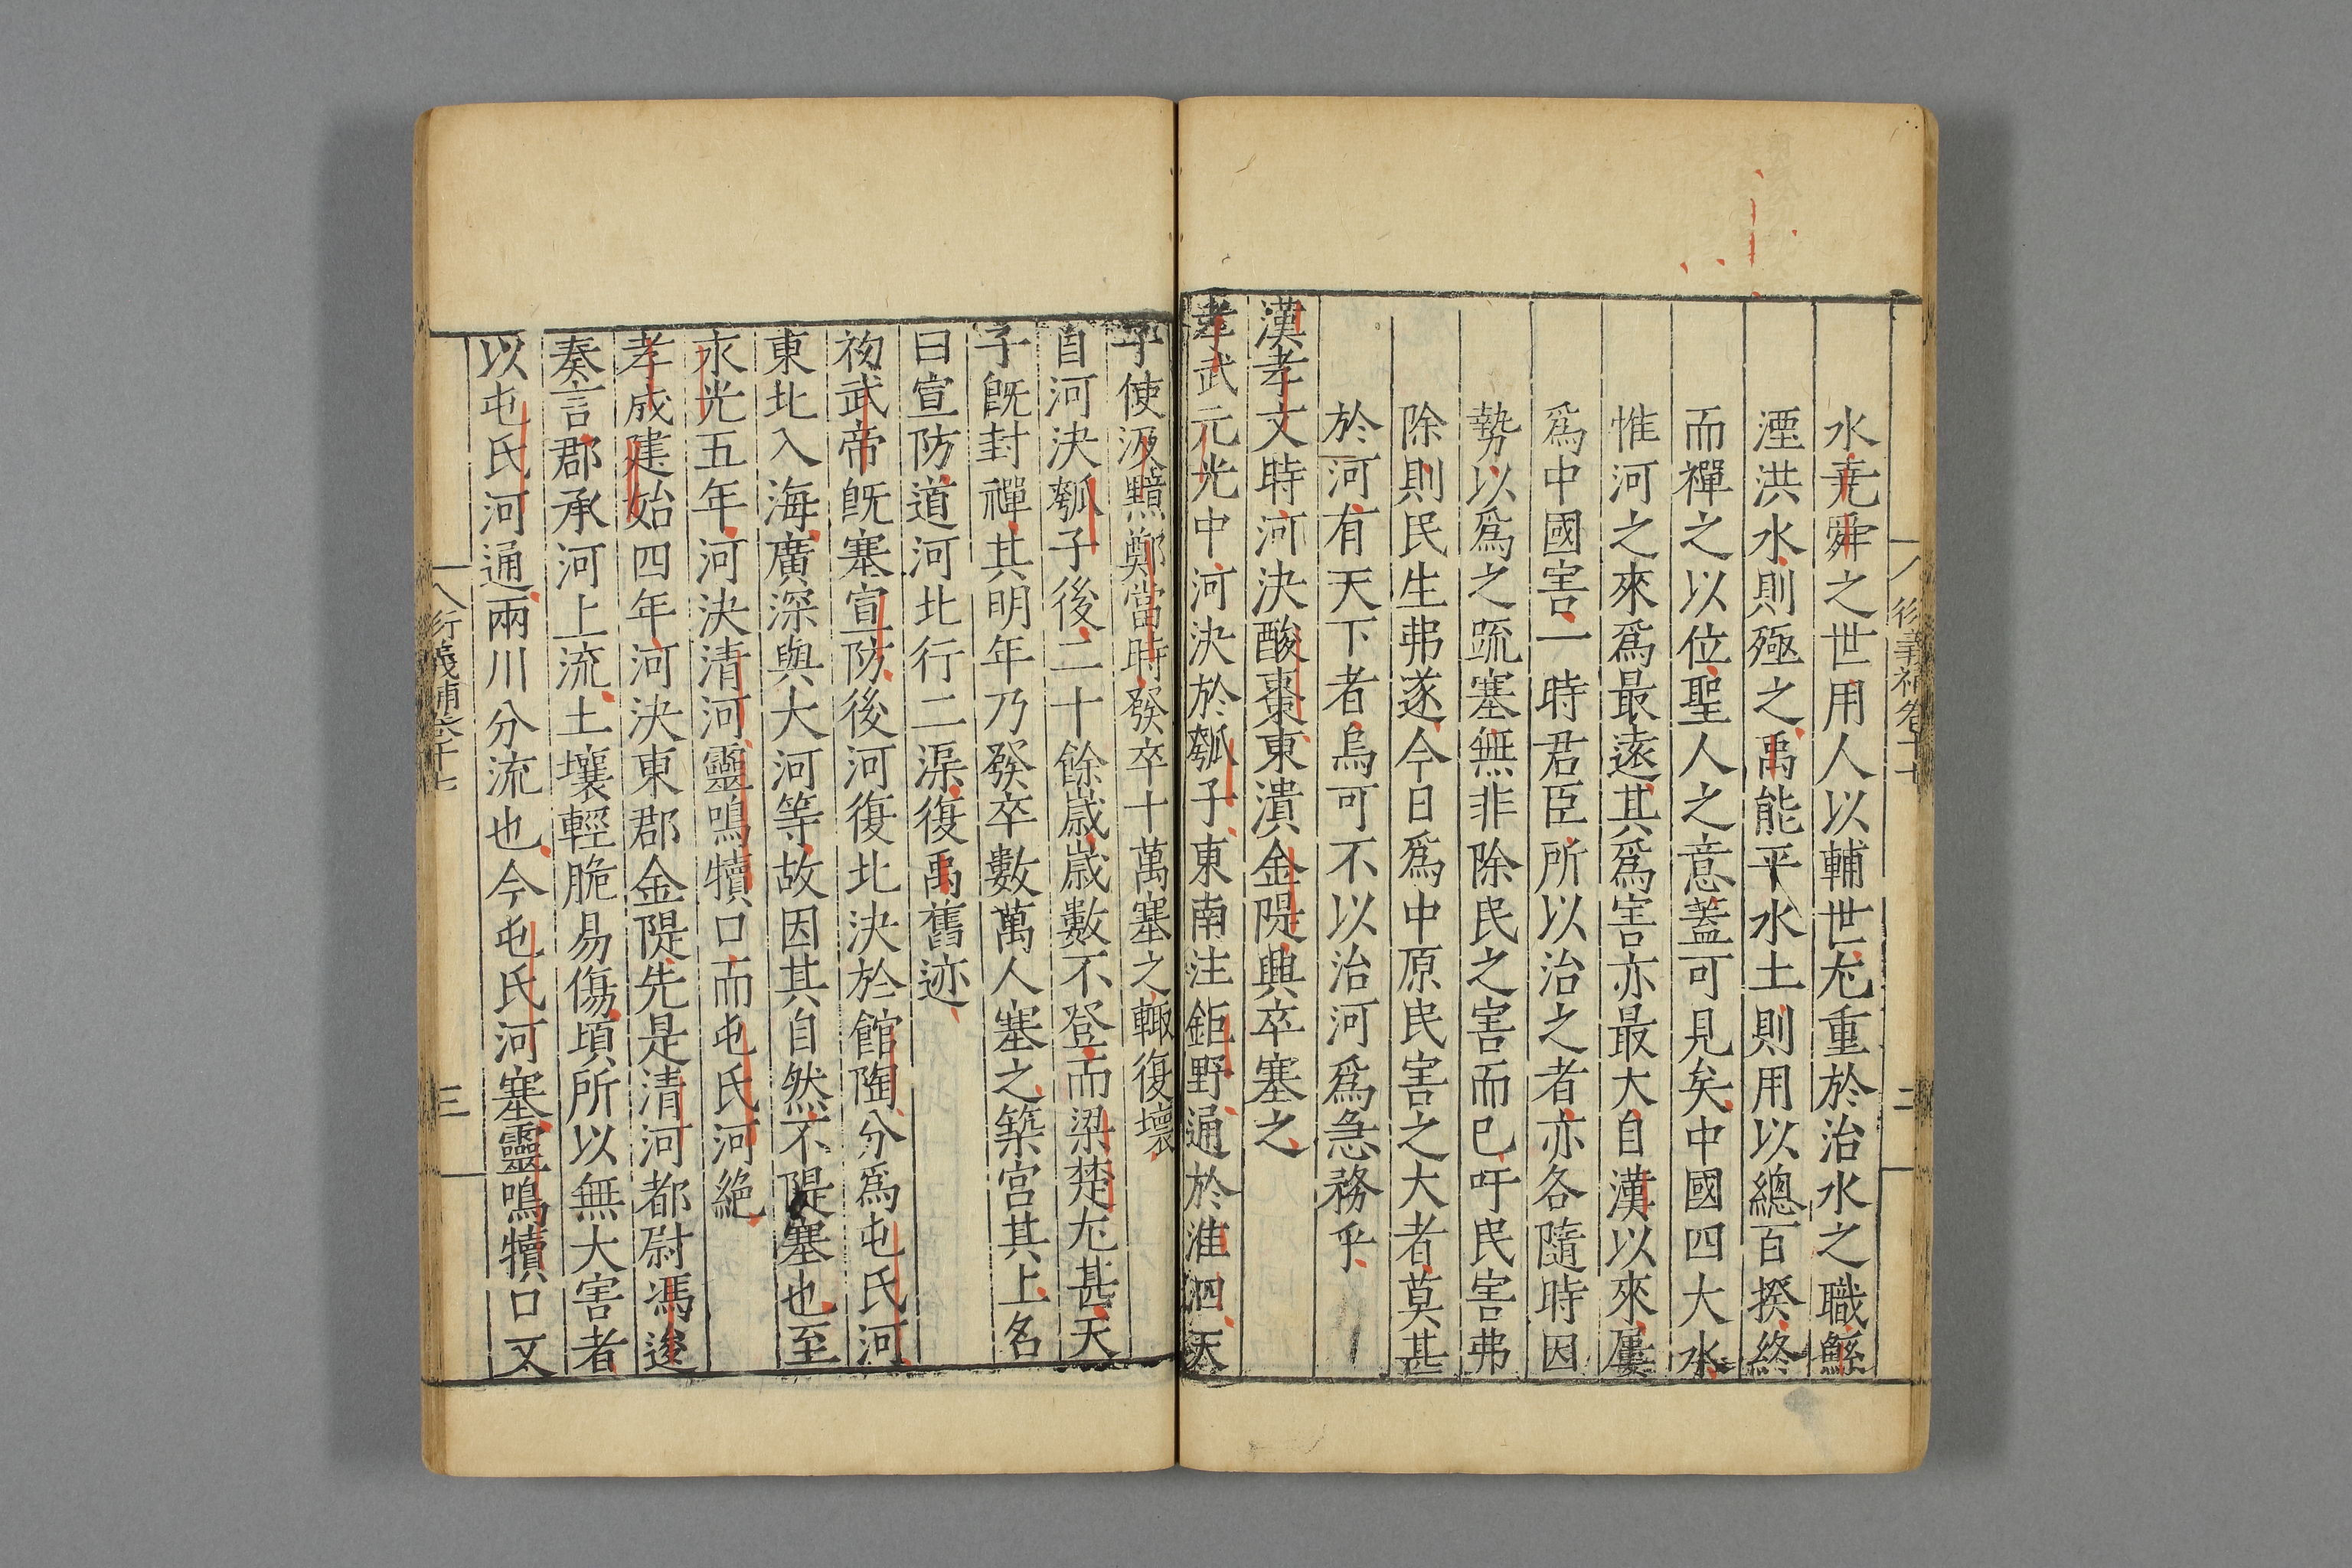 衍義補卷十七
二
水堯舜之世用人以輔世尤重於治水之職鯀
湮洪水則殛之禹能平水土則用以總百揆終
而禪之以位聖人之意蓋可見矣中國四大水
惟河之來爲最遠其爲害亦最大自漢以來屢
爲中國害一時君臣所以治之者亦各隨時因
勢以爲之疏塞無非除民之害而已吁民害弗
除則民生弗遂今日爲中原民害之大者莫甚
於河有天下者烏可不以治河爲急務乎
漢孝文時河決酸棗東潰金隄興卒塞之
孝武元光中河決於瓠子東南注鉅野通於淮泗天
子使汲黯鄭當時發卒十萬塞之輒復壞
自河決瓠子後二十餘歲歲數不登而梁楚尤甚天
子旣封禪其明年乃發卒數萬人塞之築宮其上名
曰宣防道河北行二渠復禹舊迹
初武帝旣塞宣防後河復北決於館陶分爲屯氏河
東北入海廣深與大河等故因其自然不隄塞也至
永光五年河決清河靈鳴犢口而屯氏河絶
孝成建始四年河決東郡金隄先是清河都尉馮逡
奏言郡承河上流土壤輕脆易傷頃所以無大害者
以屯氏河通兩川分流也今屯氏河塞靈鳴犢口又
衍義補卷十七
三